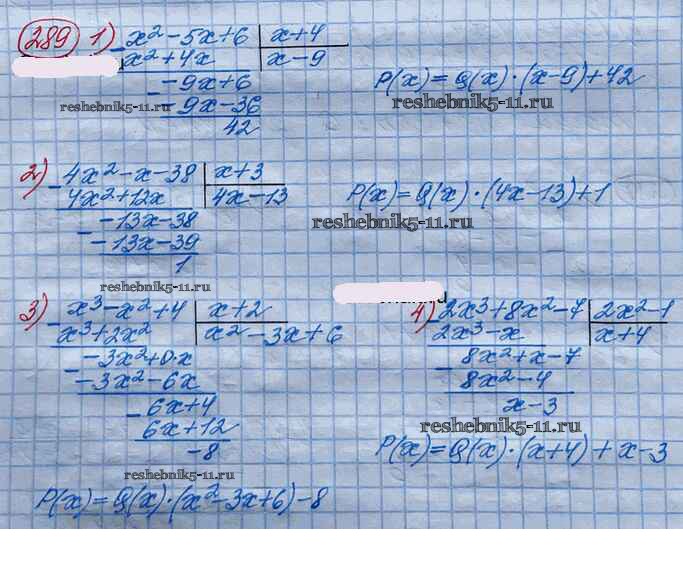 289 1) x² - 5x + 6 | x + 4
x² + 4x | x - 9
- 9x + 6
- 9x - 36
42
P(x) = Q(x) · (x - 9) + 42
reshebnik5-11.ru
reshebnik5-11.ru
2) 4x² - x - 38 | x + 3
4x² + 12x | 4x - 13
- 13x - 38
- 13x - 39
1
P(x) = Q(x) · (4x - 13) + 1
reshebnik5-11.ru
reshebnik5-11.ru
3) x³ - x² + 4 | x + 2
x³ + 2x² | x² - 3x + 6
- 3x² + 0·x
- 3x² - 6x
6x + 4
6x + 12
- 8
reshebnik5-11.ru
P(x) = Q(x) · (x² - 3x + 6) - 8
4) 2x³ + 8x² - 7 | 2x² - 1
2x³ - x | x + 4
8x² + x - 7
8x² - 4
x - 3
reshebnik5-11.ru
P(x) = Q(x) · (x + 4) + x - 3